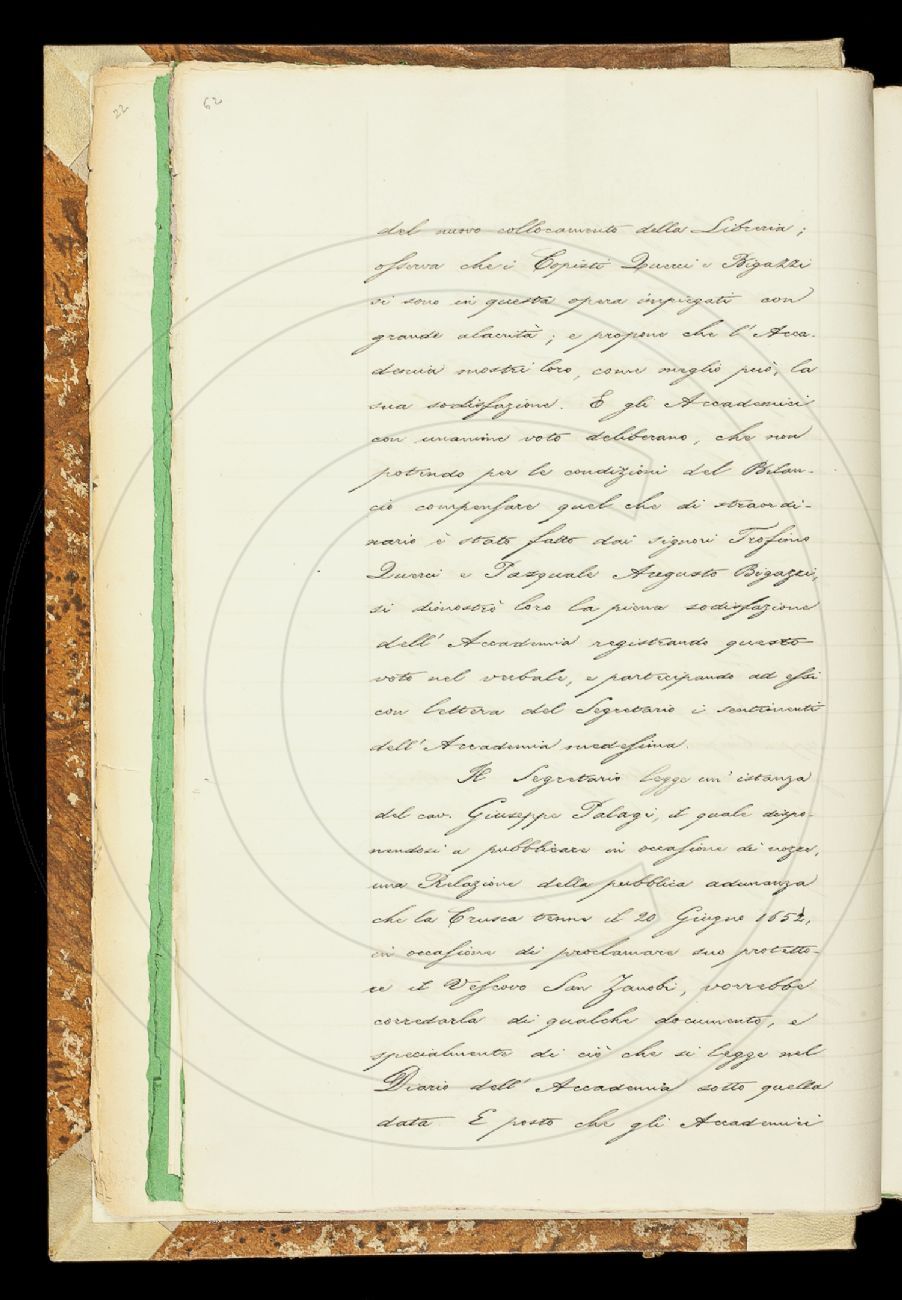 22
62
del nuovo collocamento della Libreria;
osserva che i Copisti Querci e Bigazzi
si sono in questa opera impiegati con
grande alacrità; e propone che l'Acca-
demia mostri loro, come meglio può, la
sua sodisfazione. E gli Accademici
con unanime voto deliberano, che non
potendo per le condizioni del Bilan-
cio compensare quel che di straordi-
nario è stato fatto dai signori Trofimo
Querci e Pasquale Augusto Bigazzi,
si dimostrò loro la piena sodisfazione
dell'Accademia registrando questo
voto nel verbale, e partecipando ad essi
con lettera del Segretario i sentimenti
dell'Accademia medesima.
Il Segretario legge un'istanza
del cav. Giuseppe Palagi, il quale dispo-
nendosi a pubblicare in occasione di nozze,
una Relazione della pubblica adunanza
che la Crusca tenne il 20 Giugno 1652,
in occasione di proclamare suo protetto-
re il Vescovo San Zanobi, vorrebbe
corredarla di qualche documento, e
specialmente di ciò che si legge nel
Diario dell'Accademia sotto quella
data. E posto che gli Accademici